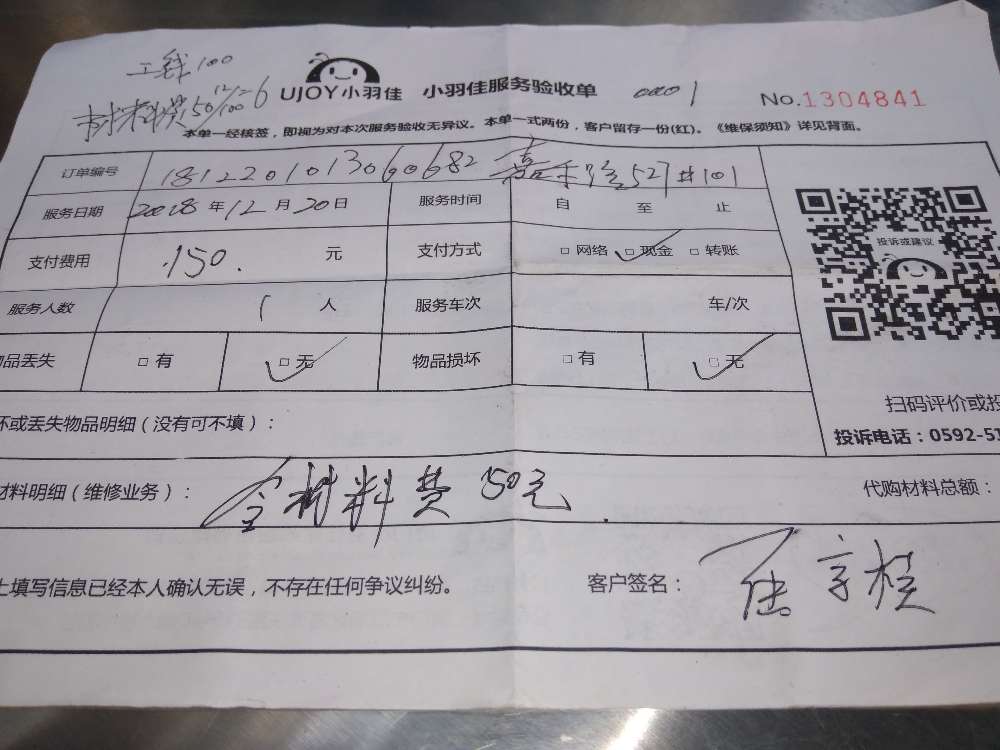 工钱100
材料费50
12/26
100
UJOY小羽佳 小羽佳服务验收单 0001 No.1304841
本单一经核签，即视为对本次服务验收无异议。本单一式两份，客户留存一份(红)。《维保须知》详见背面。
订单编号 1812201013060682 嘉禾路527#101
服务日期 2018年12月20日 服务时间 自 至 止
投诉或建议
支付费用 150. 元 支付方式 □网络 □现金 □转账
服务人数 1 人 服务车次 车/次
品丢失 □有 □无 物品损坏 □有 □无
扫码评价或投
坏或丢失物品明细（没有可不填）：
投诉电话：0592-51
材料明细（维修业务）： 含材料费50元. 代购材料总额：
上填写信息已经本人确认无误，不存在任何争议纠纷。 客户签名：